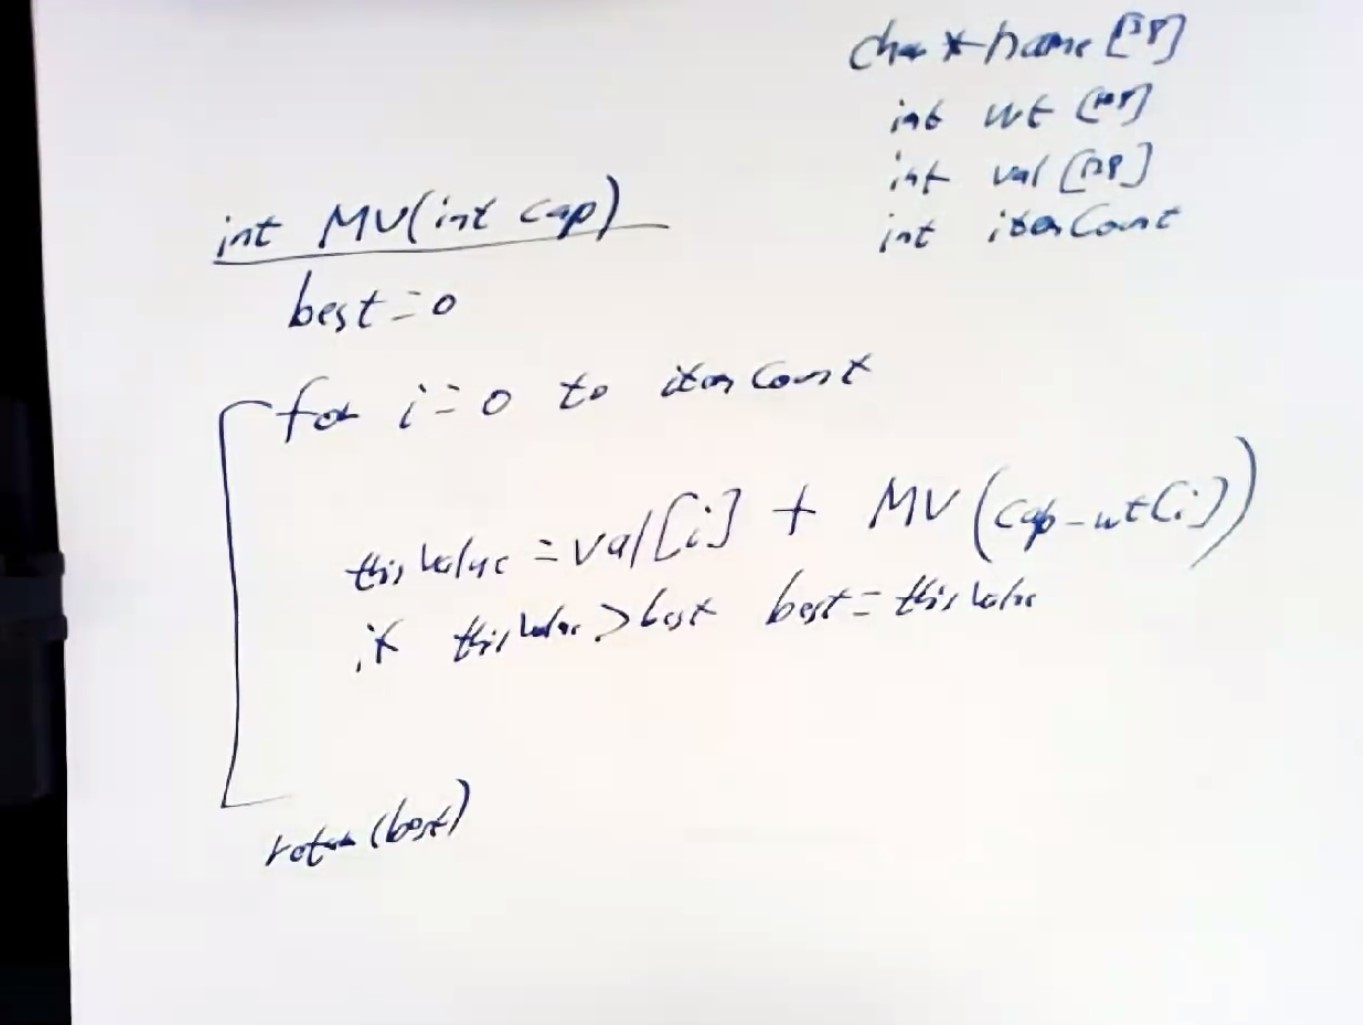 char *name[128]
int wt[128]
int val[128]
int itemCount
int MV(int cap)
best=0
for i=0 to itemCount
thisValue = val[i] + MV(cap-wt[i])
if thisValue > best best = thisValue
return(best)